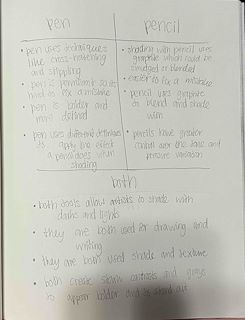 pen
• pen uses techniques
like cross-hatching
and stippling
• pen is permanent so its
hard to fix a mistake
• pen is bolder and
more defined
• pen uses different techniques
to apply the effect
a pencil does when
shading
pencil
• shading with pencil uses
graphite which could be
smudged or blended
• easier to fix a mistake
• pencil uses graphite
to blend and shade
with
• pencils have greater
control over the tones and
pressure variation
both
• both tools allow artists to shade with
darks and lights
• they are both used for drawing and
writing
• they are both used shade and texture
• both create contrasts and
to appear bolder and stand out